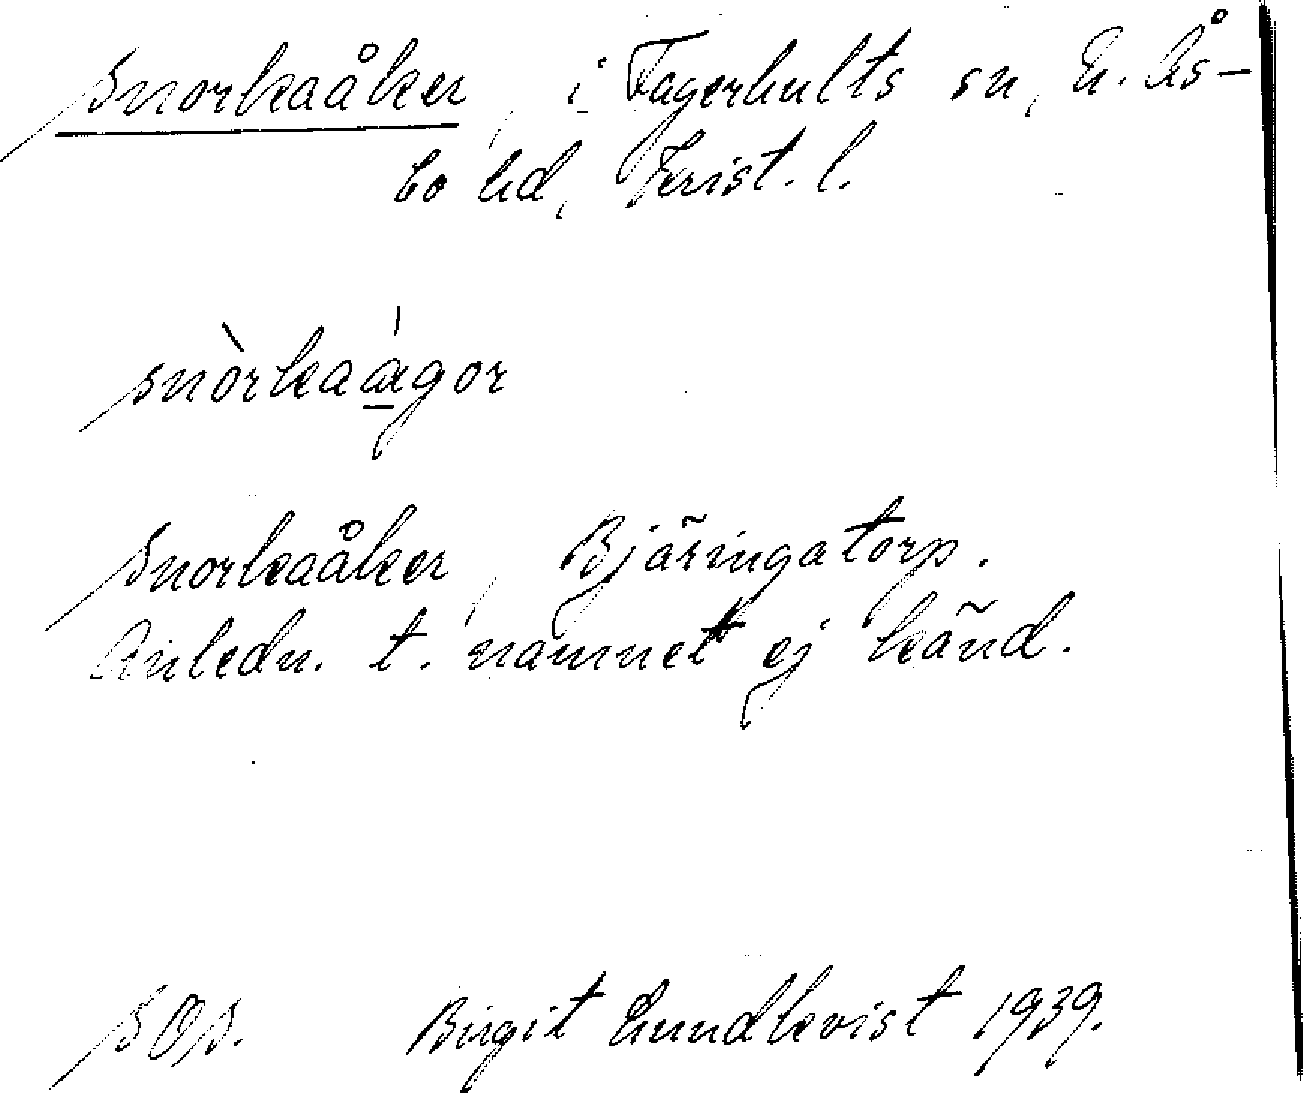 Snorkaåker, i Fagerhults sn, N. Ås-
bo hd, Krist. l.
snòrkaágor
Snorkaåker, Bjäringatorp.
Anledn. t. namnet ej känd.
SOS. Birgit Lundkvist 1939.